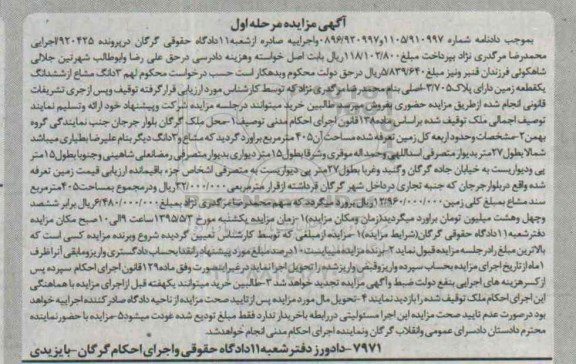 آگهی مزایده مرحله اول
بموجب دادنامه شماره ۱۱۰۵/۹۱۰۹۹۷و۰۸۹۶/۹۲۰۹۹۷ واجراییه صادره ازشعبه۱۱دادگاه حقوقی گرگان درپرونده ۹۲۰۴۲۵/اجرایی
محمدرضا مرگدری نژاد بپرداخت مبلغ۱۱۸/۱۰۲/۸۰۰ریال بابت اصل خواسته وهزینه دادرسی درحق علی رضا وابوطالب شهرتین جلالی
شاهکوئی فرزندان قنبر ونیز مبلغ۵/۸۳۹/۶۴۰ریال درحق دولت محکوم وبدهکار است حسب درخواست محکوم لهم ۳دانگ مشاع ازششدانگ
یکقطعه زمین دارای پلاک۳/۷۰۵-اصلی بنام محمدرضا مرگدری نژاد که توسط کارشناس مورد ارزیابی قرارگرفته توقیف وپس ازجری تشریفات
قانونی انجام شده ازطریق مزایده حضوری بفروش میرسد طالبین خرید میتوانند درجلسه مزایده شرکت وپیشنهاد خود ارائه وتسلیم نمایند
توصیف اجمالی ملک توقیف شده براساس ماده۱۳۸قانون اجرای احکام مدنی توصیف:۱-محل ملک گرگان بلوار جرجان جنب نمایندگی گروه
بهمن۲-مشخصات وحدود اربعه کل زمین تعرفه شده مساحت آن۴۰۵ مترمربع برآورد گردید که مشاع ۳دانگ دیگر بنام علیرضا بطیاری میباشد
شمالا بطول۲۷متر بدیوار متصرفی اسداللهی وحمداله موقری وشرقا بطول۱۵متر دیواری بدیوار متصرفی رمضانعلی شاهینی وجنوبا بطول۱۵متر
پی ودیواریست به خیابان جاده گرگان وگنبد وغربا بطول۲۷متر پی دیواریست به متصرفی اشخاص جزء باقیمانده ارزیابی قیمت زمین تعرفه
شده واقع دربلوارجرجان که جنبه تجاری درداخل شهر گرگان قرداشته ازقرار مترمربعی ۳۲/۰۰۰/۰۰۰ریال ودرمجموع بمساحت۴۰۵مترمربع
سند مشاع بمبلغ کلی زمین ۱۲/۹۶۰/۰۰۰/۰۰۰ریال برآورد میگردد که سهم محمدرضا مرگدری نژاد بمبلغ۶/۴۸۰/۰۰۰/۰۰۰ریال برابر ششصد
وچهل وهشت میلیون تومان برآورد میگردید(زمان ومکان مزایده)۱-زمان مزایده یکشنبه مورخ ۱۳۹۵/۵/۳ساعت ۹الی۱۰صبح مکان مزایده
دفترشعبه۱۱دادگاه حقوقی گرگان(شرایط مزایده)۱-مزایده ازمبلغی که توسط کارشناس تعیین گردیده شروع وبرنده مزایده کسی است که
بالاترین مبلغ رادرجلسه مزایده قبول نماید۲-برنده مزایده میبایست۱۰درصد مبلغ مورد پیشنهاد رانقدا بحساب دادگستری واریزومابقی آنراظرف
۱ماه ازتاریخ اجرای مزایده بحساب سپرده واریزوقبض واریز شده را تحویل اجرا نماید درغیراینصورت وفق ماده۱۲۹قانون اجرای احکام سپرده پس
ازکسرهزینه های اجرایی بنفع دولت ضبط وآگهی مزایده تجدید خواهد شد ۳-طالبین خرید میتوانند یکهفته قبل ازاجرای مزایده با هماهنگی
این اجرای احکام ملک توقیف شده را بازدید نمایند ۴-تحویل مال مورد مزایده پس ازتایید صحت مزایده از ناحیه دادگاه صادرکننده اجراییه خواهد
بود درصورت عدم تایید صحت مزایده این اجرا مسئولیتی دررابطه باخریدار ندارد فقط مبلغ تودیع شده عودت میشود۵-مزایده با حضورنماینده
محترم دادستان دادسرای عمومی وانقلاب گرگان ونماینده اجرای احکام مدنی انجام خواهدشد.
۷۹۷۱-دادورز دفترشعبه۱۱دادگاه حقوقی واجرای احکام گرگان-بایزیدی